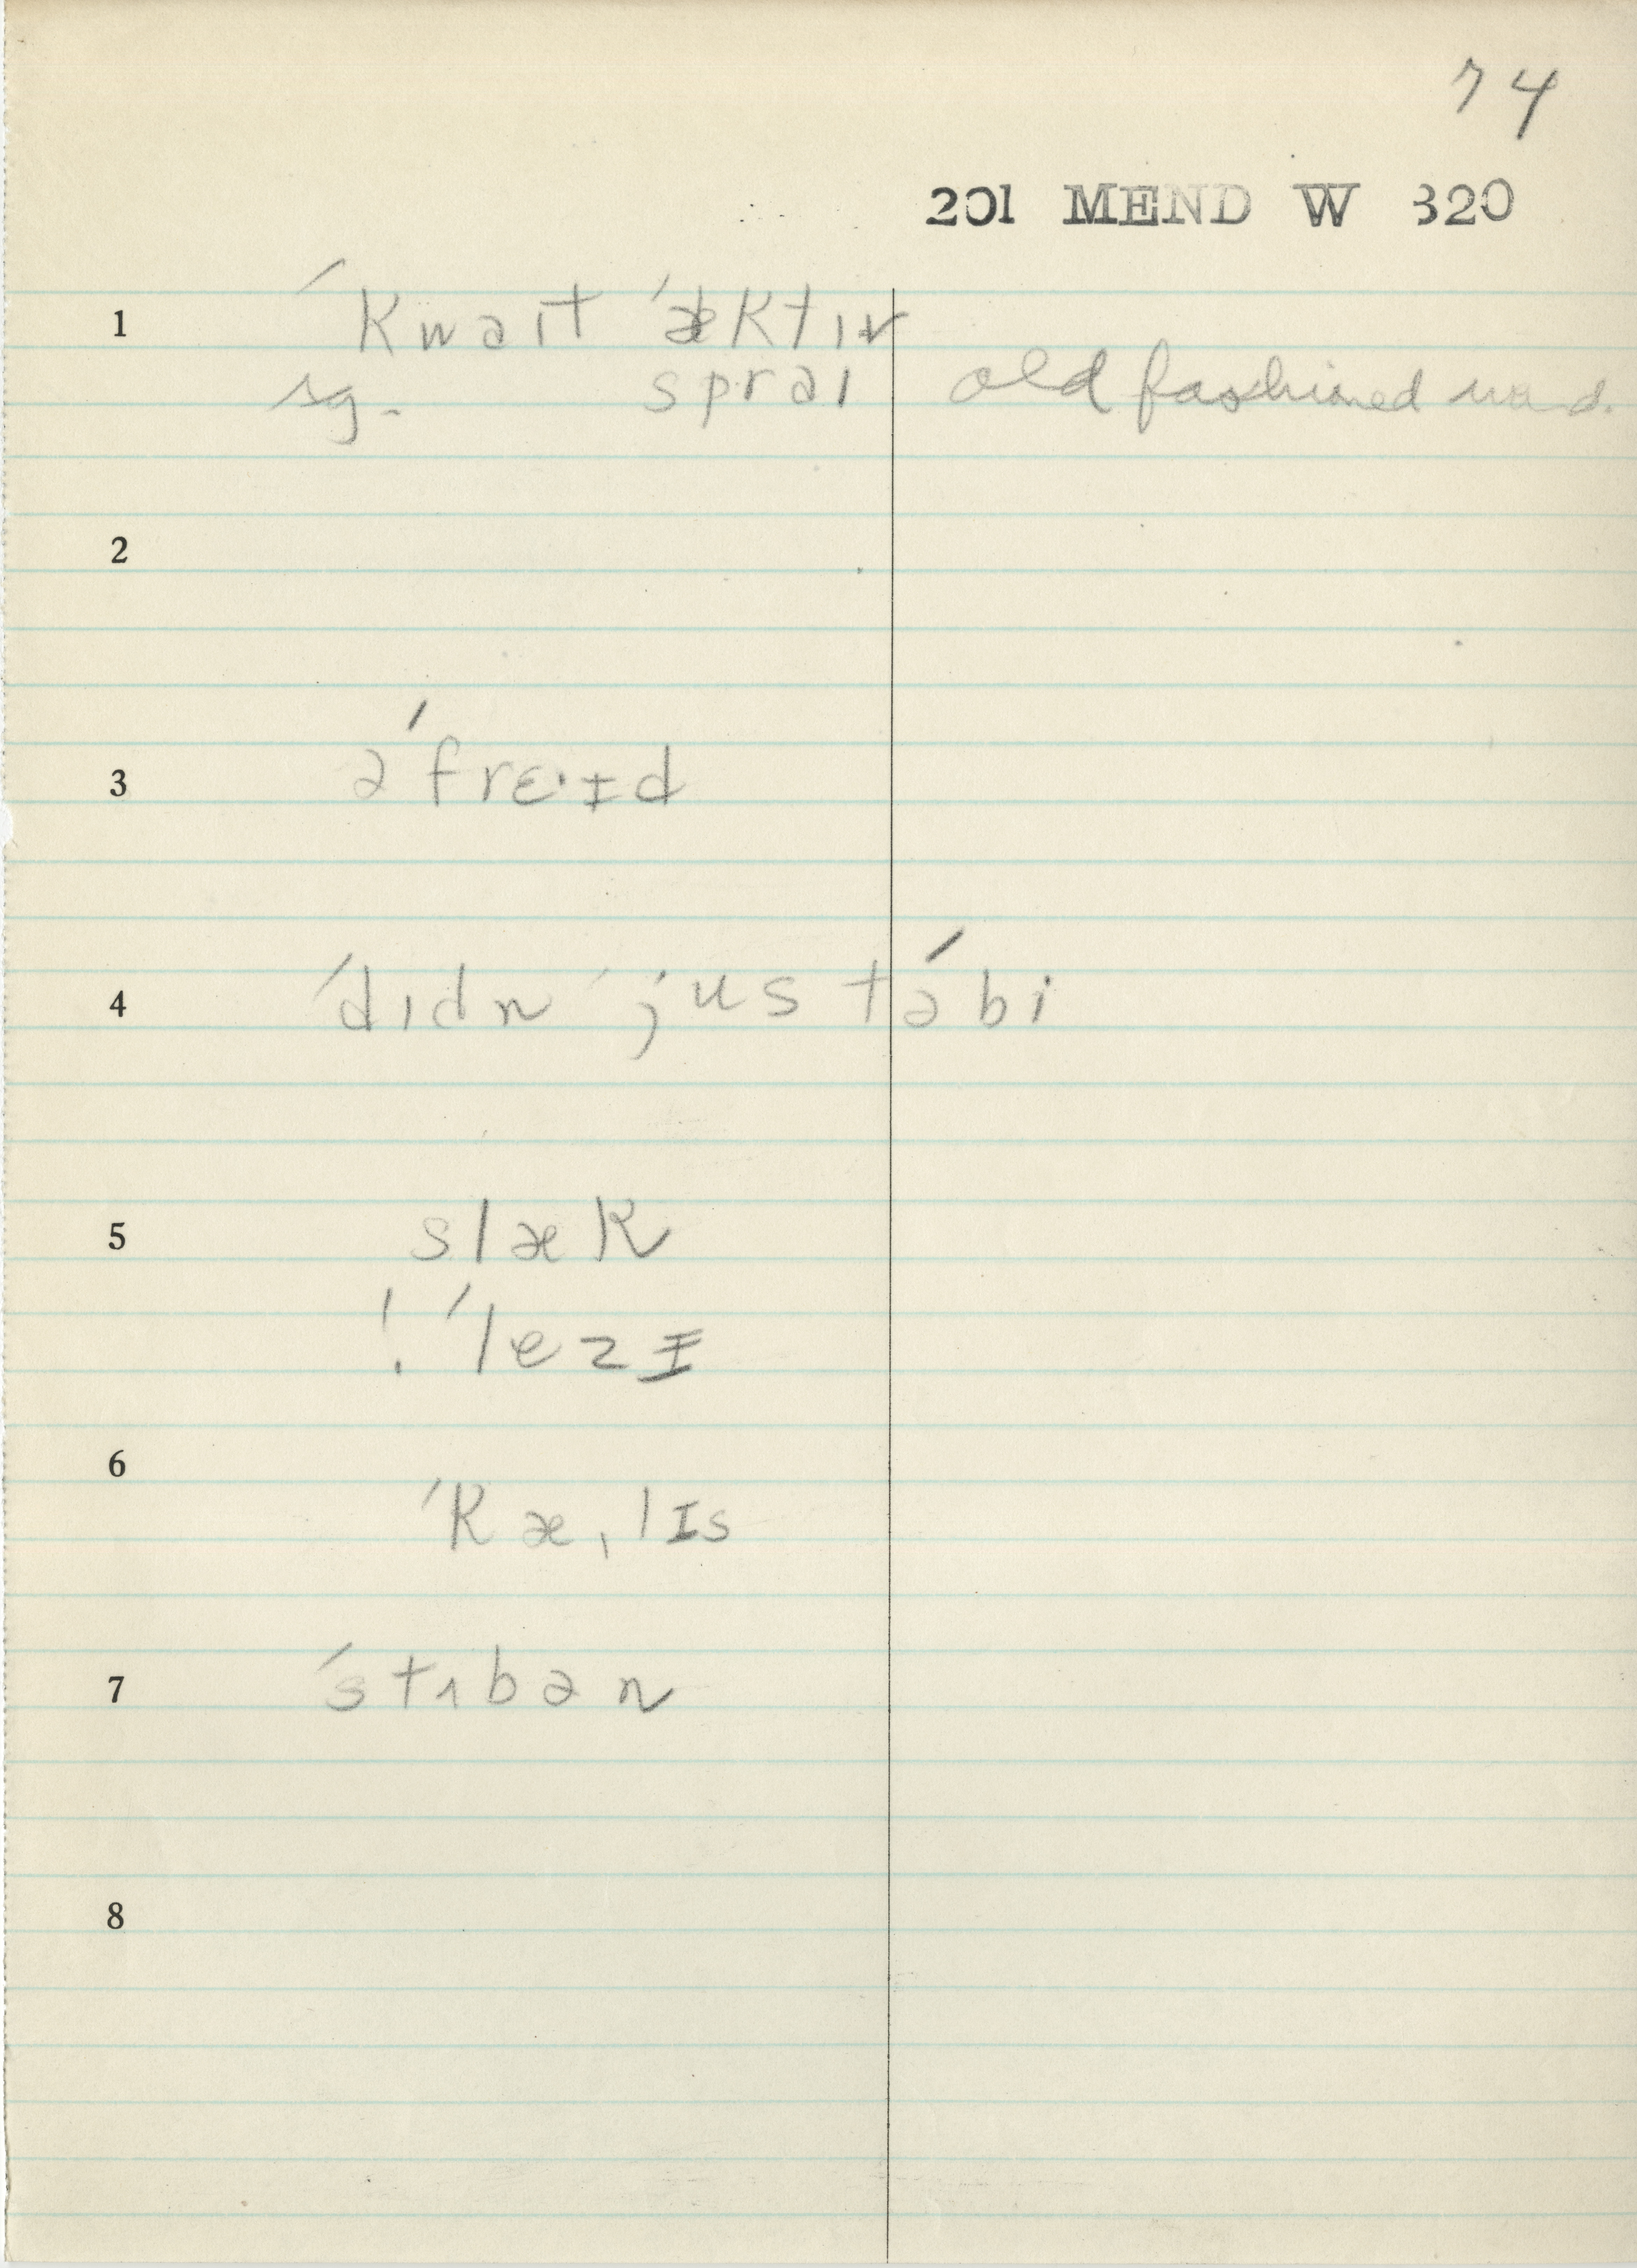 74
201 MEND W 320
1 ˈkwaɪt ˈæktɪv
sg. spraɪ old fashioned word.
2
3 əˈfrɛ·ɨd
4 ˈdɪdn ˈjustəˈbi
5 slæk
! ˈlezɨ
6 ˈkæˌlɪs
7 ˈstɪbən
8